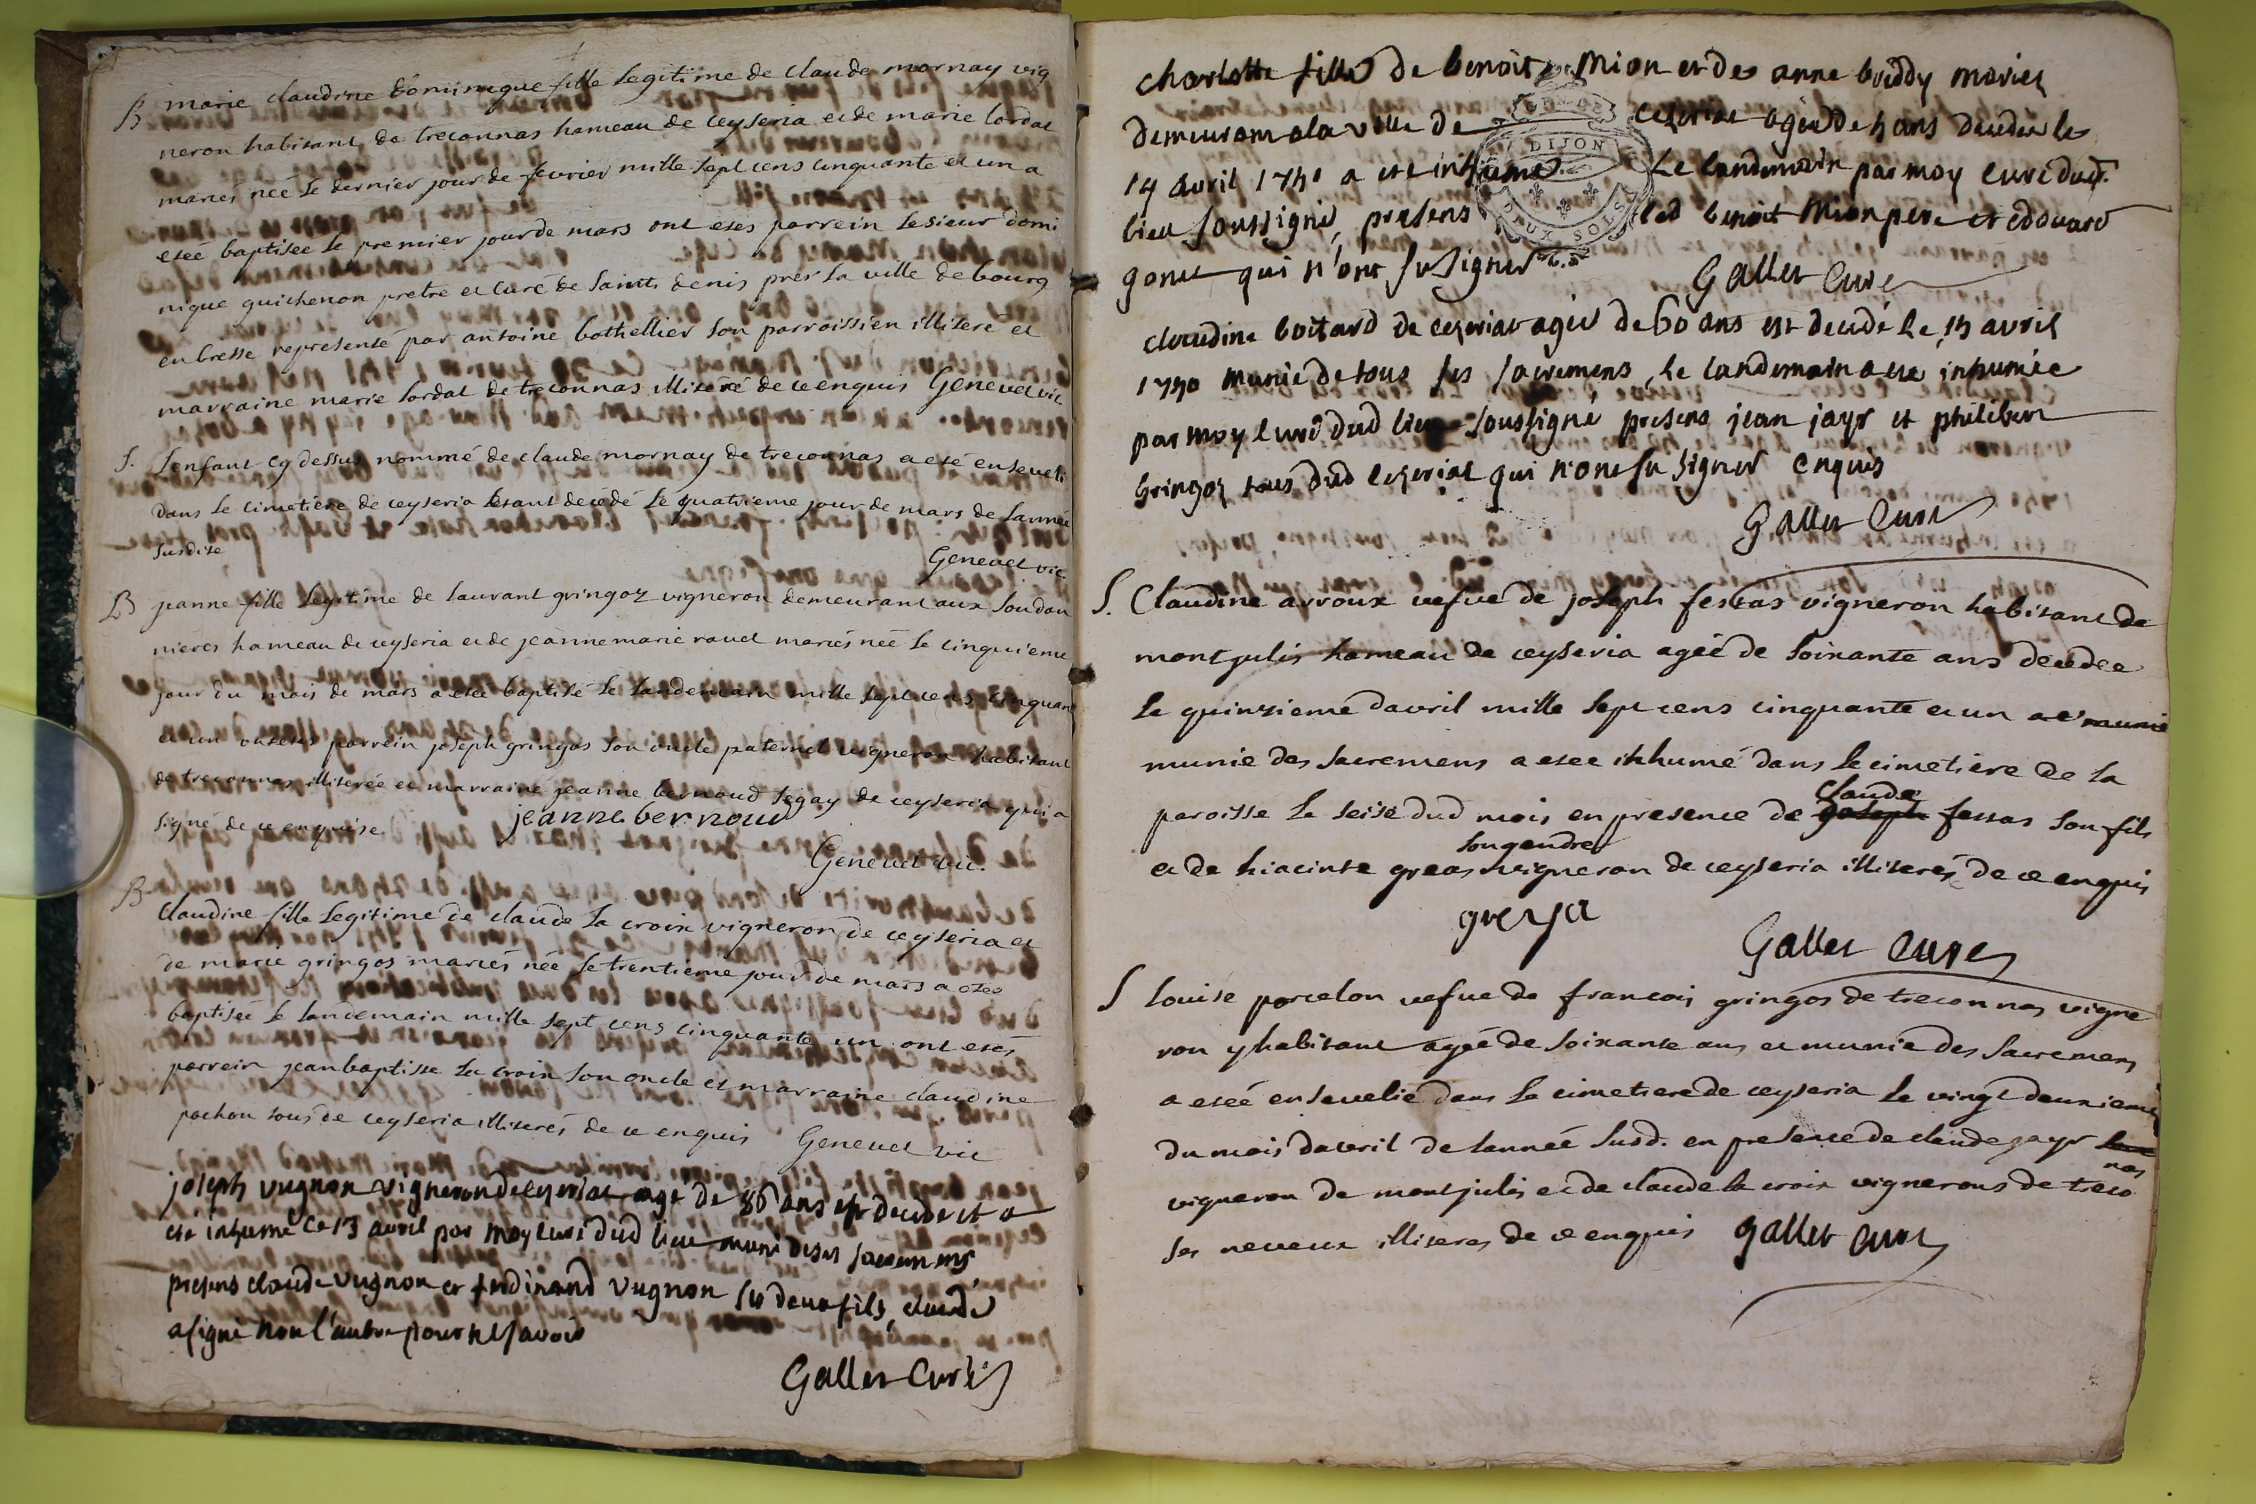 B marie claudine dominique fille legitime de claude mornay vig
neron habitant de treconnas hameau de ceyseria et de marie sordat
mariés neé le dernier jour de fevrier mille sept cens cinquante et un a
eteé baptisee le premier jour de mars ont etes parrein le sieur domi
nique guichenon pretre et curé de saint denis pres la ville de bourg
en bresse representé par antoine bothellier son parroissien illiteré et
marraine marie sordat de treconnas illiteré de ce enquis Genevet vic
S. lenfant cy dessus nommé de claude mornay de treconnas a eté enseveli
dans le cimetiere de ceyseria etant decedé le quatrieme jour de mars de lannée
susdite Genevet vic.
B jeanne fille legitime de laurant gringoz vigneron demeurant aux soudan
nieres hameau de ceyseria et de jeanne marie ravet mariés neé le cinquieme
jour du mois de mars a etee baptisé le landemain mille sept cens cinquant
et un parrein joseph gringos son oncle paternel vigneron habitant
de treconnas illiterée et marraine jeanne bernoud legay de ceyseria qui a
signé de ce enquise jeanne bernoud
Genevet vic.
B claudine fille legitime de claude la croix vigneron de ceyseria et
de marie gringos mariés née le trentieme jour de mars a etee
baptiseé le landemain mille sept cens cinquante un ont etés
parrein jean baptiste la croix son oncle et marraine claudine
pochon tous de ceyseria illiterés de ce enquis Genevet vic
joseph vugnon vigneron de ceyseriat agé de 86 ans est decedé et a
eté inhumé le 13 avril par moy curé dud lieu muni de ses sacremens
presens claude vugnon et ferdinand vugnon ses deux fils, claude
a signé non l'autre pour ne savoir
Gallet Curé
charlotte fille de benoit Mion et de anne buiddy mariez
demeurant a la ville de cezeriat agée de 5 ans decedée le
DIJON
DEUX SOLS
14 avril 1751 a eté inhumée le landemain par moy curé dud.
lieu soussigné, presens led benoit Mion pere et edouard
gonet qui n'ont su signer Gallet Curé
claudine boitard de cezeriat agée de 60 ans est decedé le 15 avril
1750 munie de tous ses sacremens, le landemain a eté inhumée
par moy curé dud lieu soussigné presens jean jayr et philibert
Gringoz tous dud cezeriat qui n'ont su signer enquis
Gallet Curé
S. Claudine arroux vefve de joseph festas vigneron habitant de
montjulis hameau de ceyseria ageé de soixante ans decedee
le quinzieme davril mille sept cens cinquante et un a e' munie
munie des sacremens a etee inhumé dans le cimetiere de la
claude
paroisse le seise dud mois en presence de joseph festas son fils
son gendre
et de hiacinte greas vigneron de ceyseria illiterés de ce enquis
Gallet Curé
S louise porcelon vefve de francois gringos de treconnas vigne
ron y habitant ageé de soixante ans et munie des sacremens
a eteé ensevelie dans le cimetiere de ceyseria le vingt deuxieme
du mois davril de lanneé susd. en presence de claude jayr
nas
vigneron de montjulis et de claude la croix vignerons de treco
ses neveux illiteres de ce enquis Gallet Curé